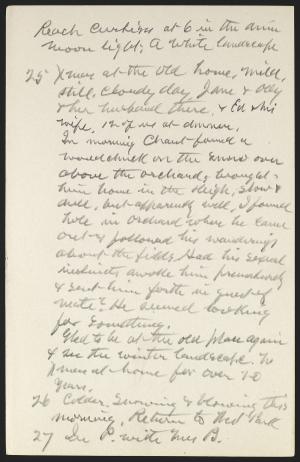 Reach Curtises at 6 in the dim
moon light; A white landscape
25 Xmas at the old home, mild,
still, cloudy day, Jane &
& her husband there, & Ed & his
wife. 12 of us at dinner.
In morning Chant found a
woodchuck on the snow over
above the orchard, brought
him home in the sleigh, slow &
dull, but apparently well, I found
hole in orchard where he came
out & followed his wanderings
about the fields, Had his sexual
instincts awoke him prematurely
& sent him forth in quest of
mate? He seemed looking
for something.
Glad to be at the old place again
& see the winter landscape. No
Xmas at home for over 20
years.
26 Colder. Snowing & blowing this
morning, Return to
27 In P. with Mrs B.